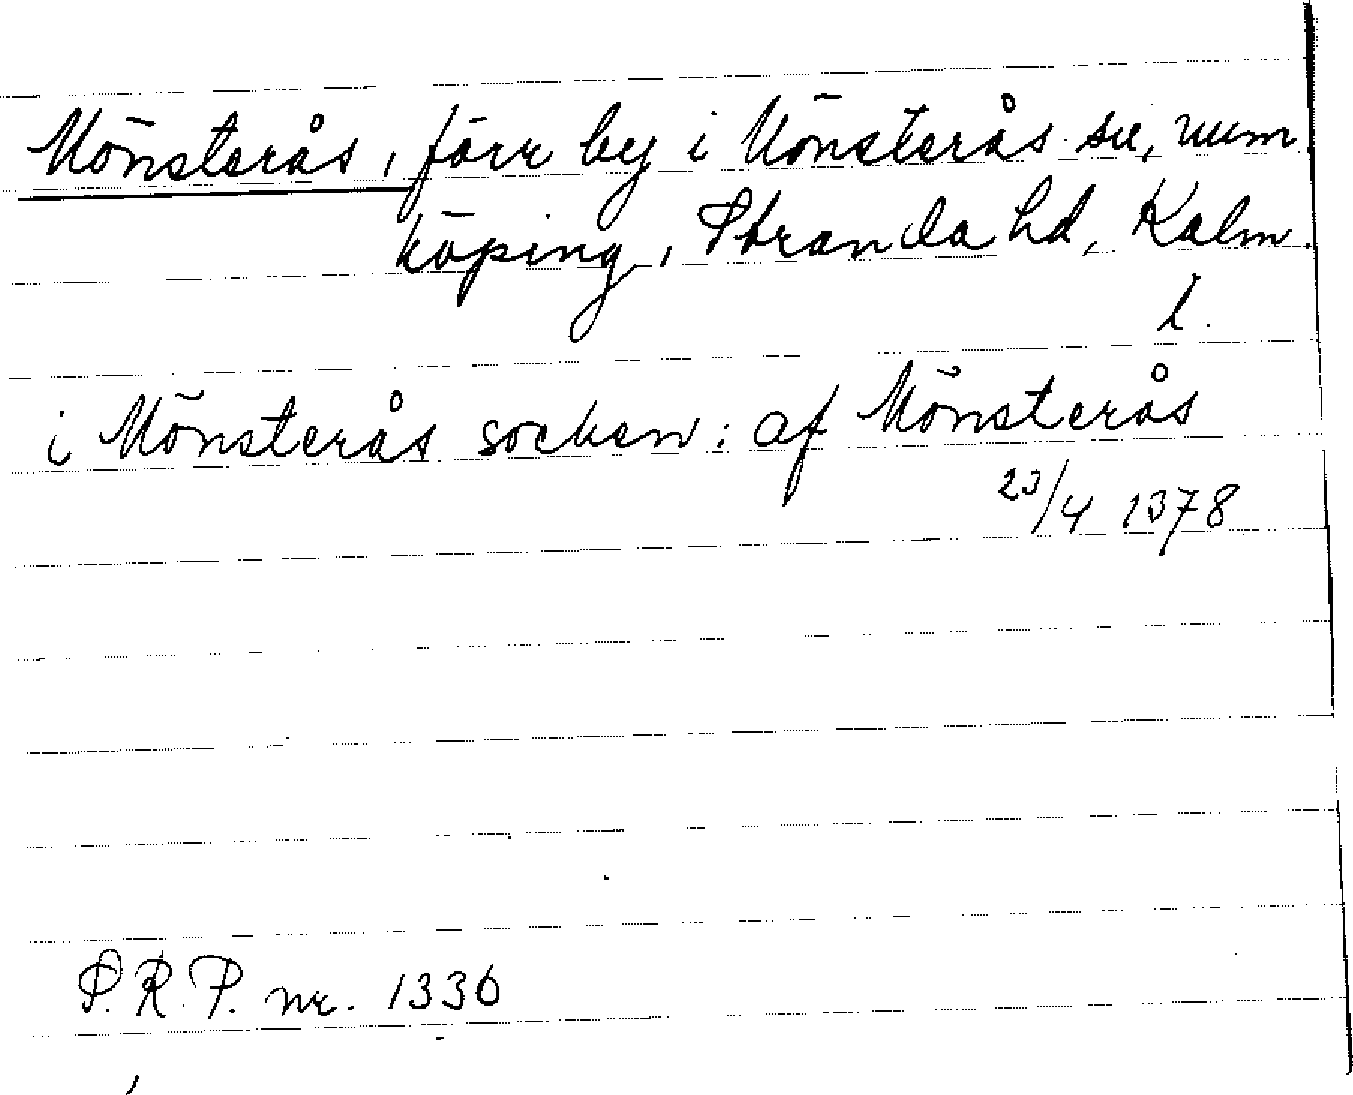 Mönsterås, förr by i Mönsterås sn, num
köping, Stranda hd, Kalm.
l.
i Mönsterås socken: af Mönsterås
23/4 1378
P.R.P. nr. 1336